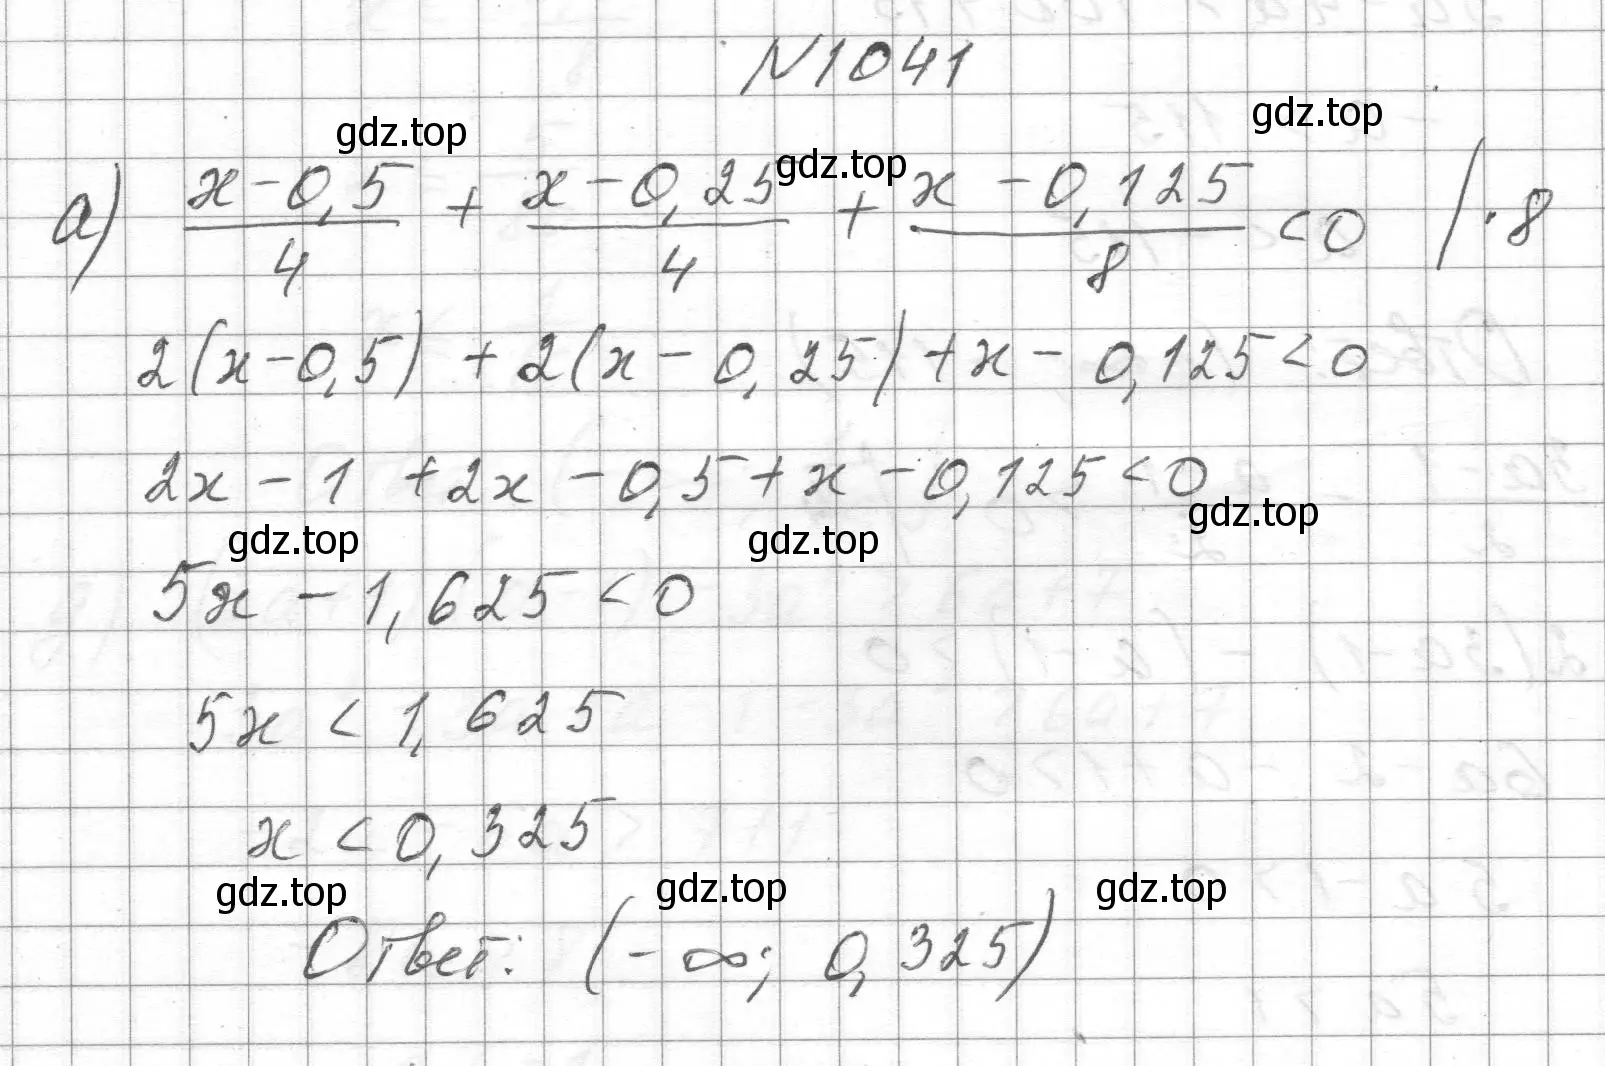 N1041
а) (x-0,5)/4 + (x-0,25)/4 + (x-0,125)/8 <0 /·8
2(x-0,5) +2(x-0,25)+x-0,125<0
2x-1 +2x-0,5+x-0,125<0
5x-1,625<0
5x<1,625
x<0,325
Ответ: (-∞; 0,325)
gdz.top
gdz.top
gdz.top
gdz.top
gdz.top
gdz.top
gdz.top
gdz.top
gdz.top